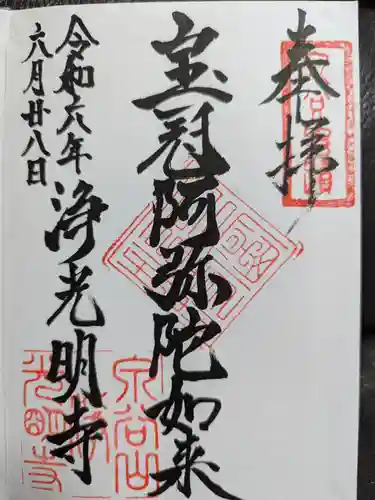 奉拝
宝冠阿弥陀如来
浄光明寺
令和六年
六月廿八日
泉谷山
光明寺